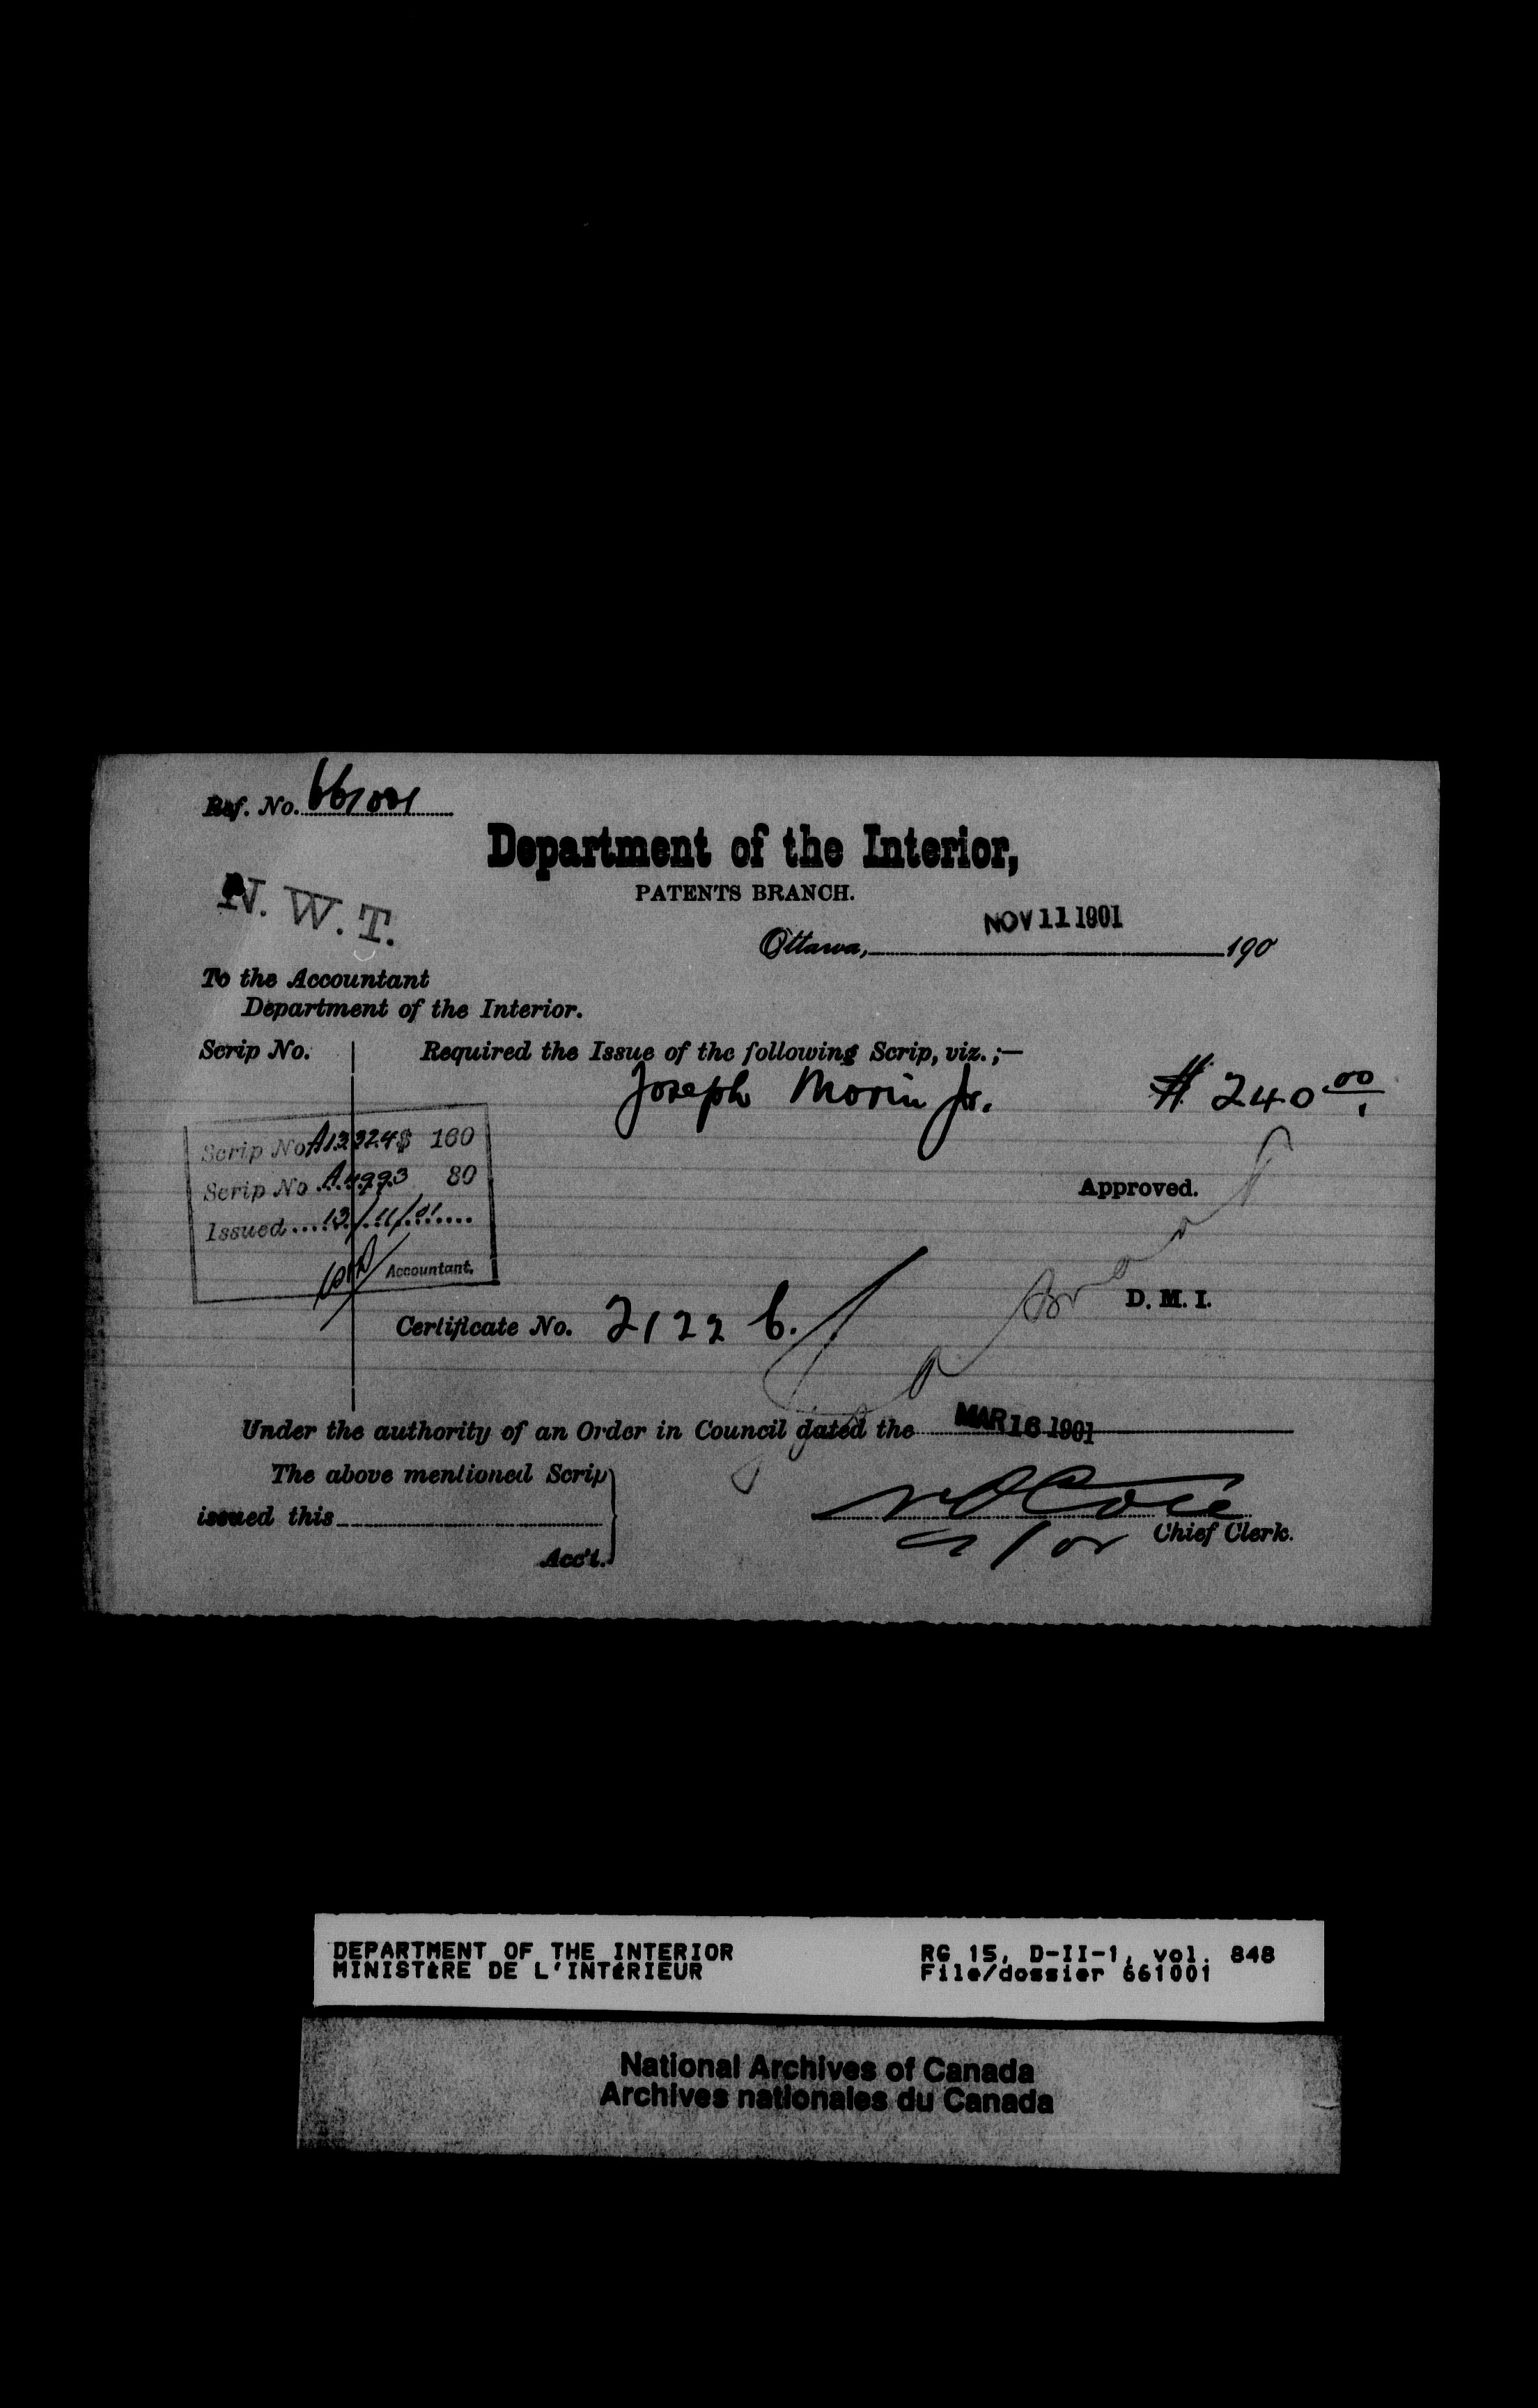 Ref. No. 661001
Department of the Interior,
PATENTS BRANCH.
N. W. T.
NOV 11 1901
Ottawa, 190
To the Accountant
Department of the Interior.
Scrip No. Required the Issue of the following Scrip, viz.;—
Joseph Morin Jr. $ 240 00
Scrip No. A13324 $ 160
Scrip No A4993 80
Issued 13/11/01
Accountant.
Approved.
D. M. I.
Certificate No. 2122 C.
Under the authority of an Order in Council dated the MAR 16 1901
The above mentioned Scrip
issued this
Acc't.
for Chief Clerk.
DEPARTMENT OF THE INTERIOR RG 15, D-II-1, vol. 848
MINISTÈRE DE L'INTÉRIEUR File/dossier 661001
National Archives of Canada
Archives nationales du Canada